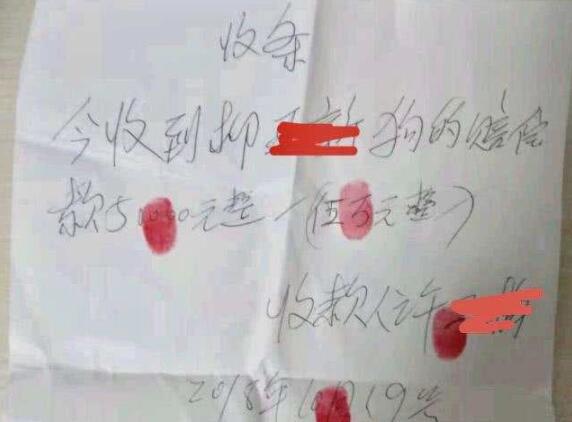 收条
今收到柳狗的赔偿
款50000元整(伍万元整)
收款人许
2018年10月19号